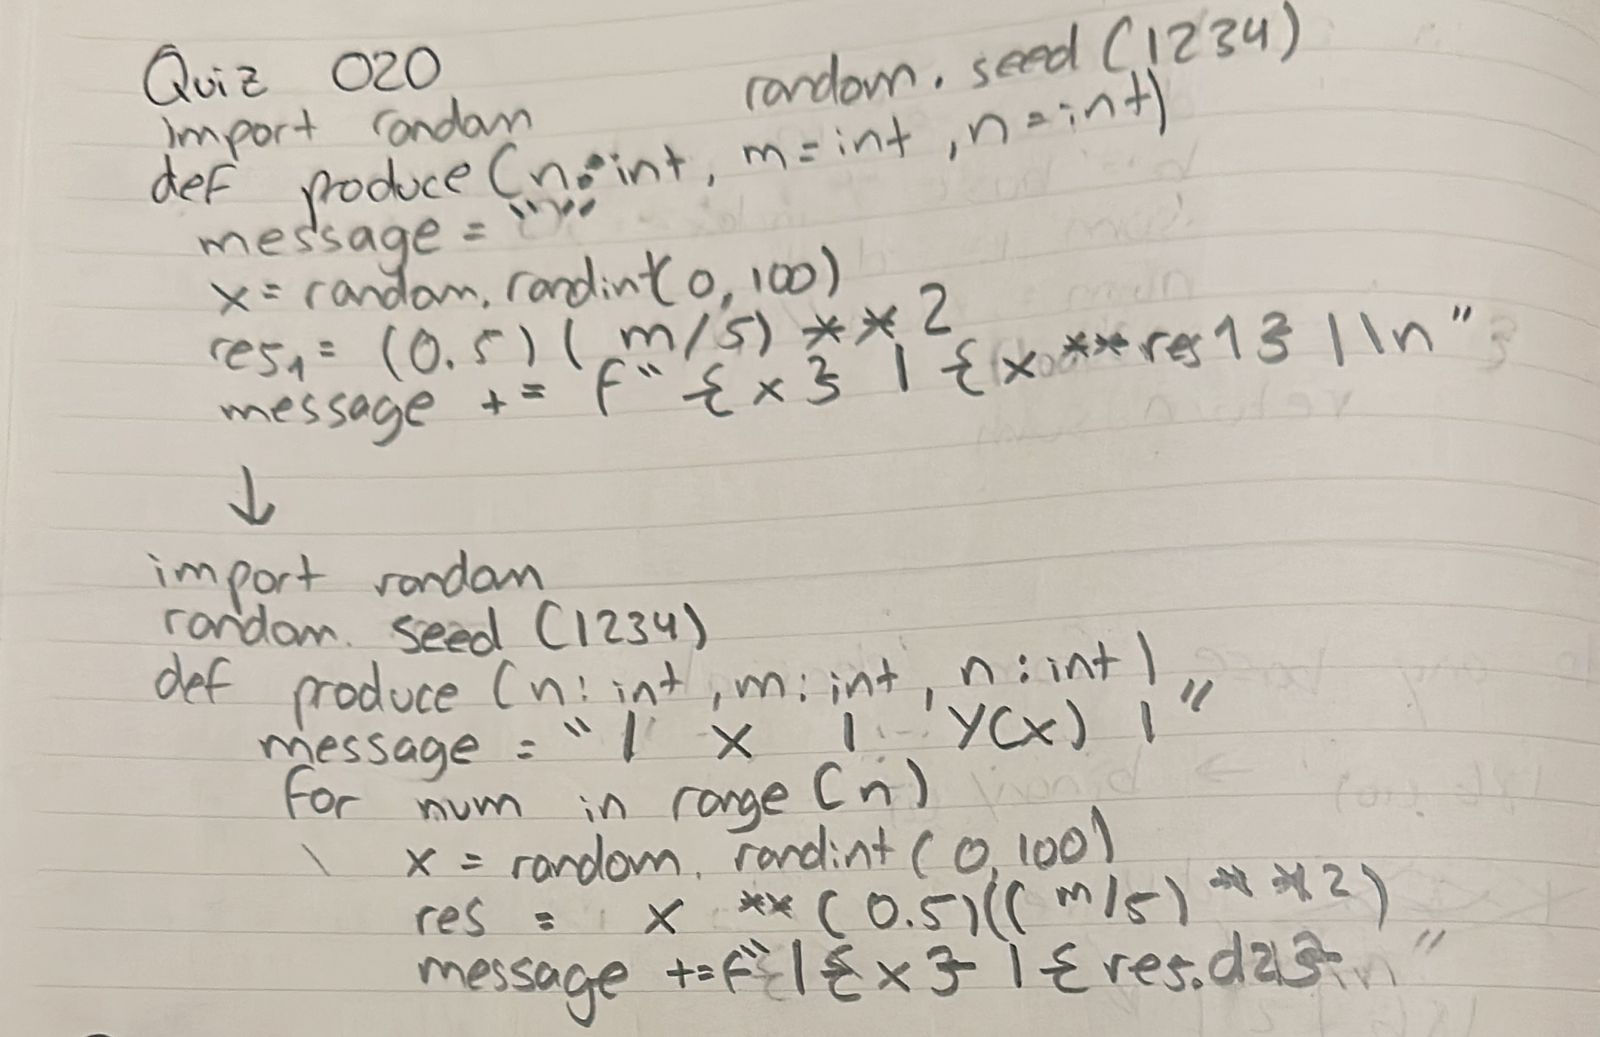 Quiz 020
import random random.seed(1234)
def produce(n:int, m=int, n=int)
message = ""
x = random.randint(0,100)
res1 = (0.5)(m/5)**2
message += f"{x} | {x**res1} |\n"
↓
import random
random.seed(1234)
def produce(n:int, m:int, n:int)
message = "| x | y(x) |"
for num in range(n)
x = random.randint(0,100)
res = x **(0.5)((m/5)**2)
message += f"|{x} | {res.d2}\n"